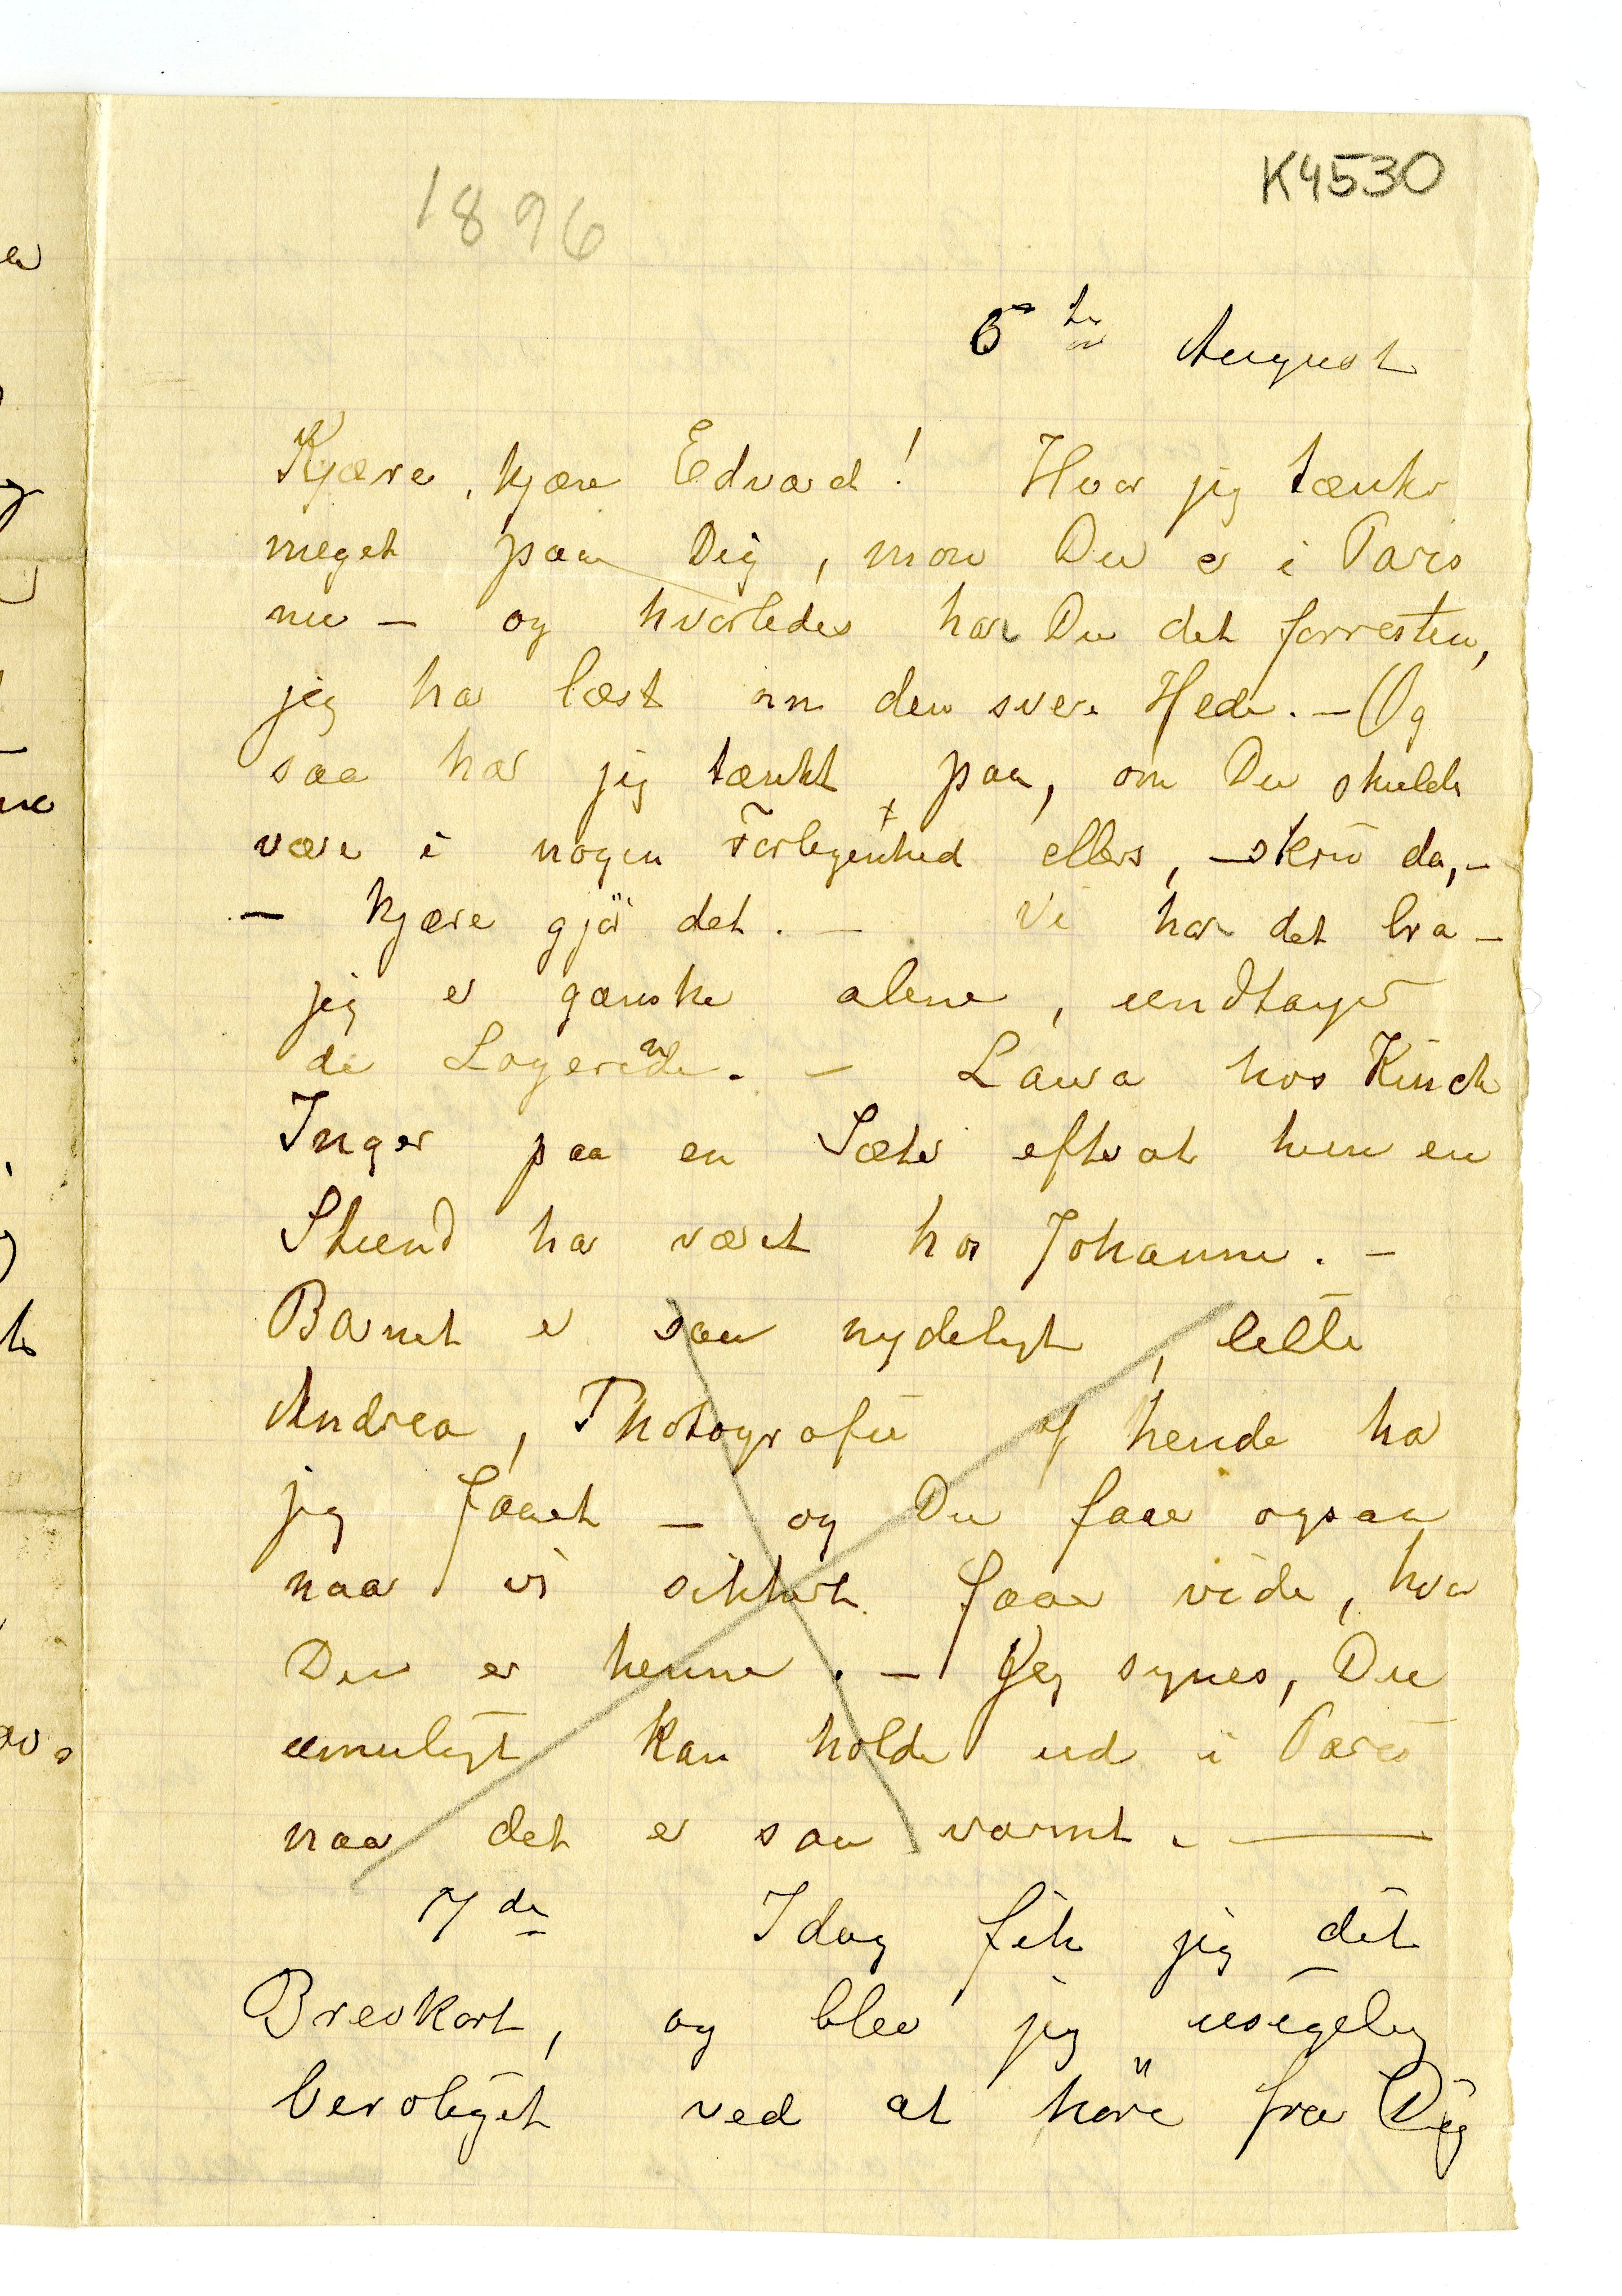 K4530
1896
6te August
Kjære, kjære Edvard! Hvor jeg tænker
meget paa Dig, mon Du er i Paris
nu – og hvorledes har Du det forresten,
jeg har læst om den svære Hede. – Og
saa har jeg tænkt paa, om Du skulde
være i nogen Forlegenhed ellers, – skriv da, –
– kjære gjör det. – Vi har det bra –
jeg er ganske alene, undtagen
de Logerende. – Laura hos Kinck
Inger paa en Sæter efterat hun en
Stund har været hos Johanne. –
Barnet er saa nydeligt, lille
Andrea, Photografie af hende har
jeg faaet – og Du faar ogsaa
naar vi sikkert faar vide, hvor
Du er henne. – Jeg synes, Du
umuligt kan holde ud i Paris
naar det er saa varmt. —
7de Idag fik jeg dit
Brevkort, og blev jeg usigelig
beroliget ved at höre fra Dig